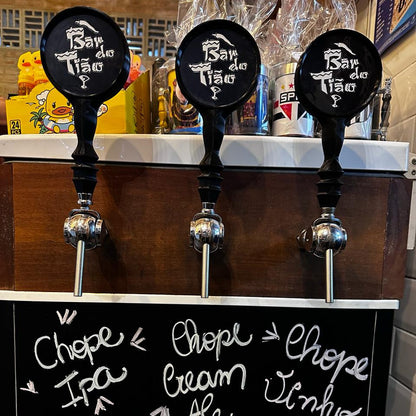 Bar do
Tião
Bar do
Tião
Bar do
Tião
24
SP
Chope
Ipa
Chope
Cream
Ale
Chope
Vinho